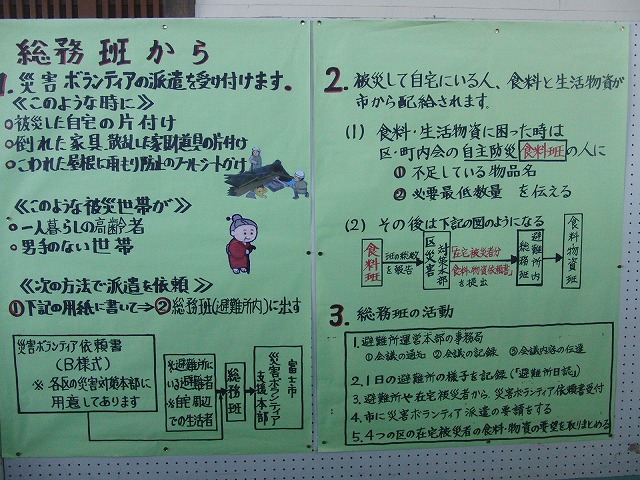 総務班から
1. 災害ボランティアの派遣を受け付けます。
≪このような時に≫
○被災した自宅の片付け
○倒れた家具、散乱した家財道具の片付け
○こわれた屋根に雨もり防止のブルーシートがけ
≪このような被災世帯が≫
○一人暮らしの高齢者
○男手のない世帯
≪次の方法で派遣を依頼≫
①下記の用紙に書いて→②総務班(避難所内)に出す
災害ボランティア依頼書
(B様式)
※各区の災害対策本部に
用意してあります
※避難所に
いる避難者
※自宅周辺
での生活者
総務班
富士市
災害ボランティア
支援本部
2. 被災して自宅にいる人、食料と生活物資が
市から配給されます。
(1) 食料・生活物資に困った時は
区・町内会の自主防災食料班の人に
① 不足している物品名
② 必要最低数量 を伝える
(2) その後は下記の図のようになる
食料班
班の総数
を報告
区災害
対策本部
「在宅被災者分
食料・物資依頼書」
を提出
避難所内
総務班
食料物資班
3. 総務班の活動
1. 避難所運営本部の事務局
①会議の通知 ②会議の記録 ③会議内容の伝達
2. 1日の避難所の様子を記録(「避難所日誌」)
3. 避難所や在宅被災者から、災害ボランティア依頼書受付
4. 市に災害ボランティア派遣の要請をする
5. 4つの区の在宅被災者の食料・物資の要望を取りまとめる